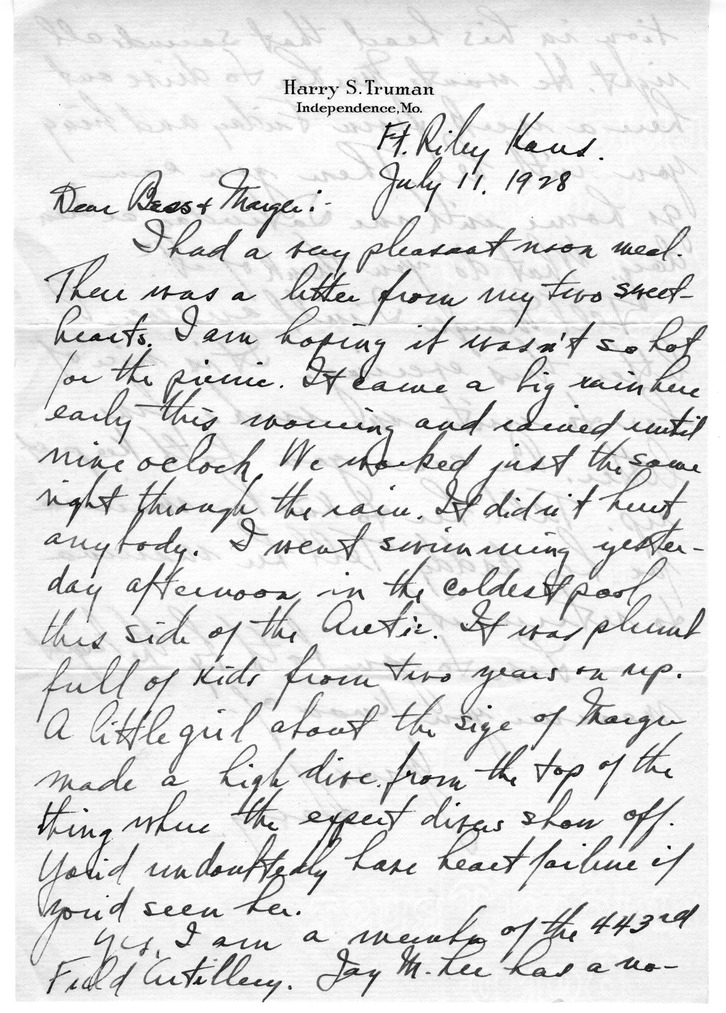 Harry S. Truman
Independence, Mo.
Ft. Riley Kans.
July 11, 1928
Dear Bess & Margie:-
I had a very pleasant noon meal.
There was a letter from my two sweet-
hearts. I am hoping it wasn't so hot
for the picnic. It came a big rain here
early this morning and rained until
nine oclock. We worked just the same
right through the rain. It didn't hurt
anybody. I went swimming yester-
day afternoon in the coldest pool
this side of the Arctic. It was plumb
full of kids from two years on up.
A little girl about the size of Margie
made a high dive from the top of the
thing where the expert divers show off.
You'd undoubtedly have heart failure if
you'd seen her.
Yes, I am a member of the 443rd
Field Artillery. Jay M. Lee has a no-